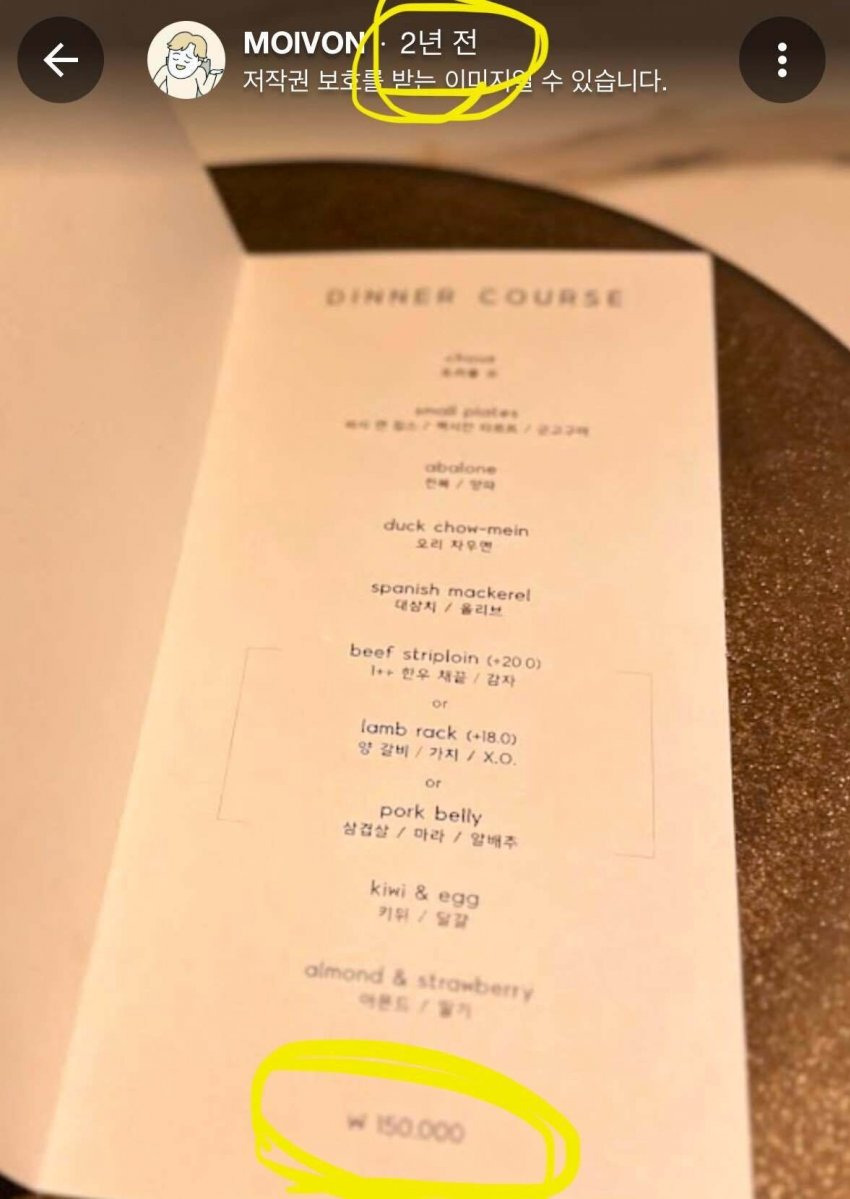 MOIVON · 2년 전
저작권 보호를 받는 이미지일 수 있습니다.
DINNER COURSE
small plates
abalone
전복 / 양파
duck chow-mein
오리 차우멘
spanish mackerel
대삼치 / 올리브
beef striploin (+20.0)
1++ 한우 채끝 / 감자
or
lamb rack (+18.0)
양 갈비 / 가지 / X.O.
or
pork belly
삼겹살 / 마라 / 알배추
kiwi & egg
키위 / 달걀
almond & strawberry
아몬드 / 딸기
₩ 150.000